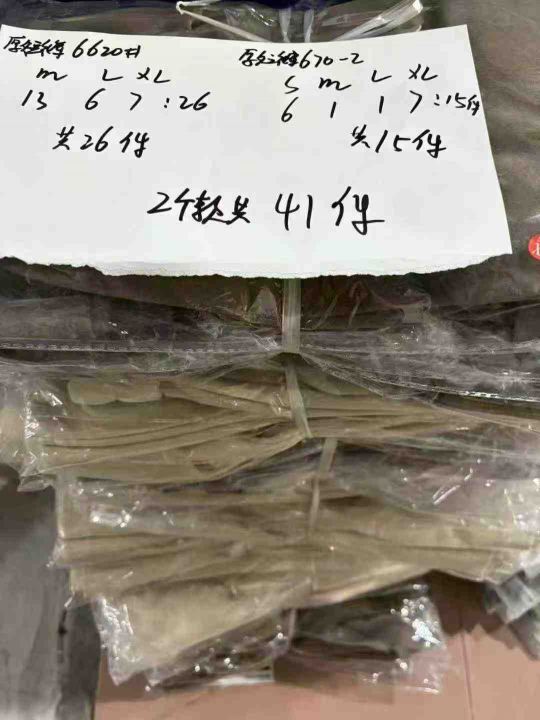 6620#
M L XL
13 6 7 : 26
共26件
670-2
S M L XL
6 1 1 7 : 15件
共15件
2个款共 41 件